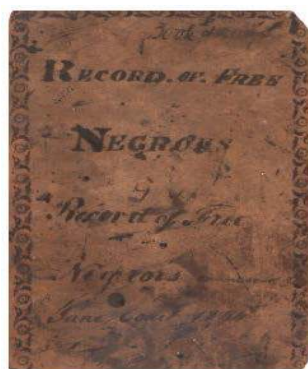 RECORD. OF. FREE
NEGROES
Record of Free
Negroes
June Court